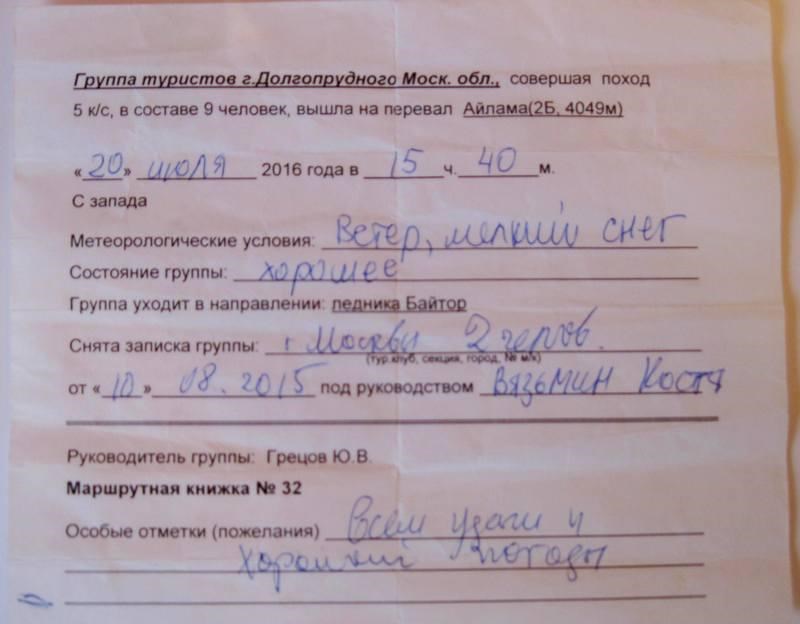 Группа туристов г.Долгопрудного Моск. обл., совершая поход
5 к/с, в составе 9 человек, вышла на перевал Айлама(2Б, 4049м)
«20» июля 2016 года в 15 ч. 40 м.
С запада
Метеорологические условия: Ветер, мелкий снег
Состояние группы: хорошее
Группа уходит в направлении: ледника Байтор
Снята записка группы: г Москвы 2
(тур.клуб, секция, город, № м/к)
от «10» 08.2015 под руководством Вязьмин Костя
Руководитель группы: Грецов Ю.В.
Маршрутная книжка № 32
Особые отметки (пожелания) Всем удачи и
Хорошей погоды